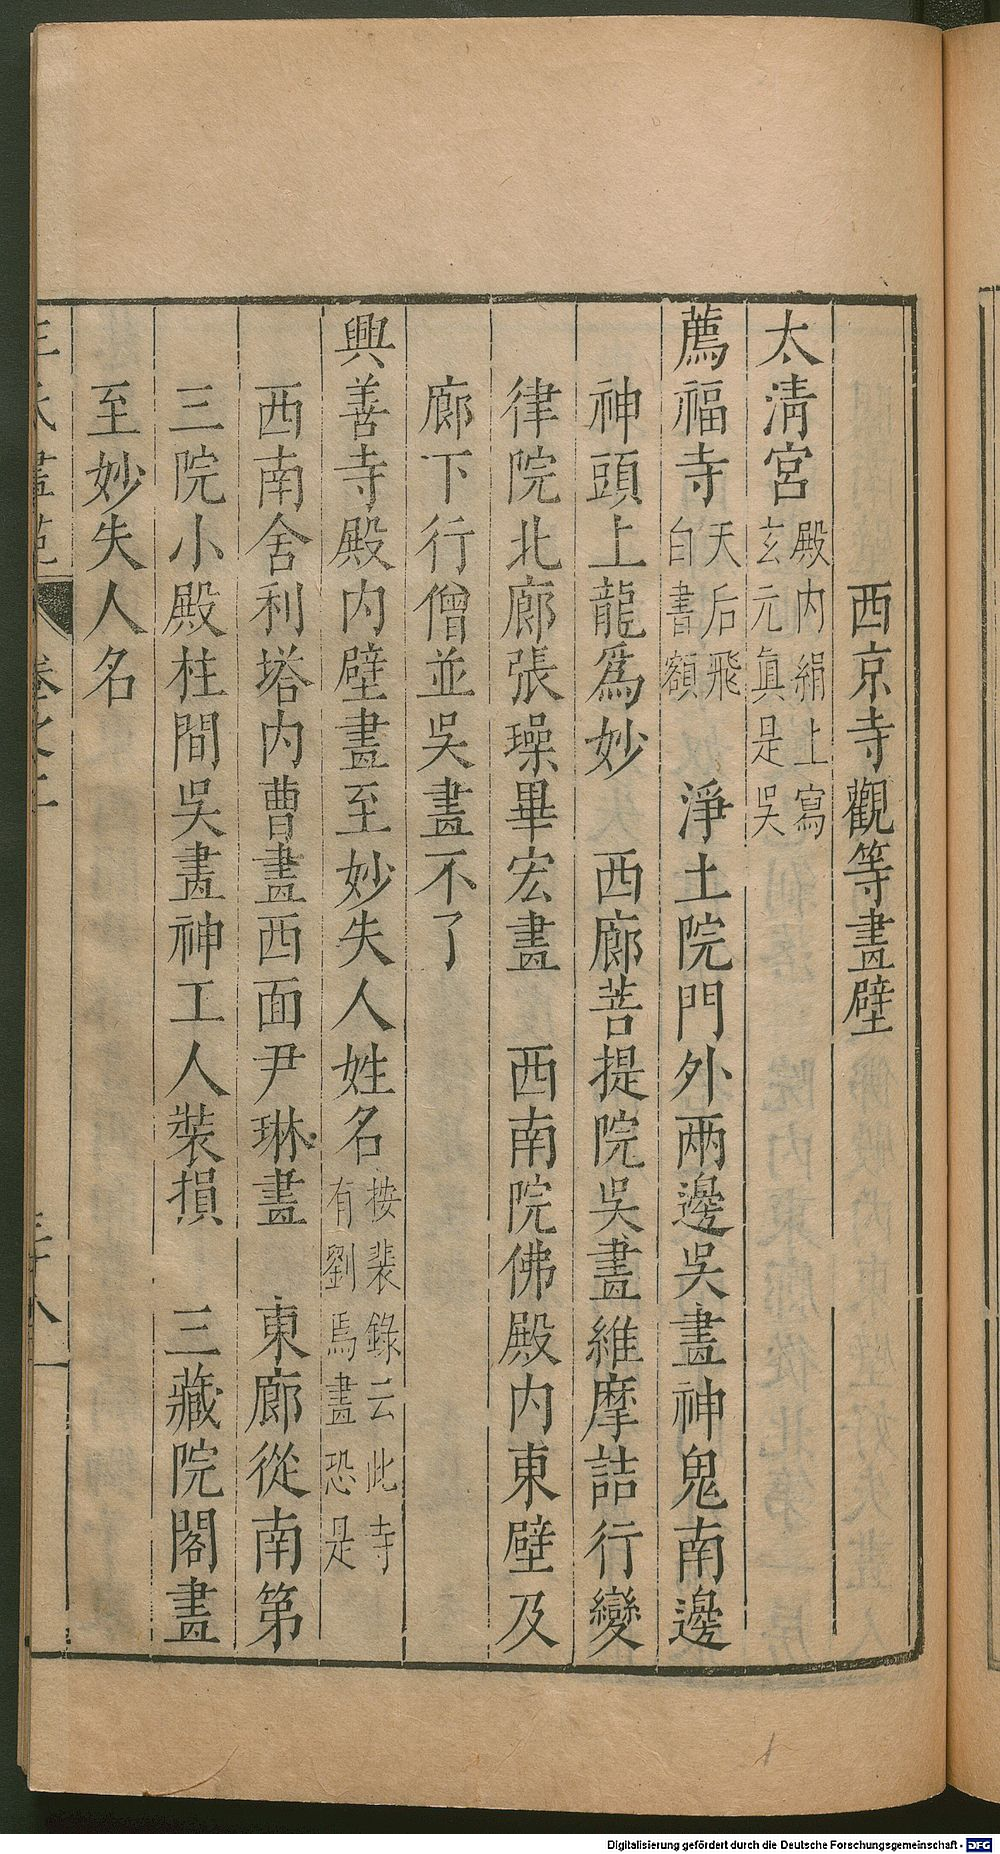 西京寺觀等畫壁
太清宮殿内絹上寫玄元眞是吳
薦福寺天后飛白書額　淨土院門外兩邊吳畫神鬼南邊
神頭上龍爲妙　西廊菩提院吳畫維摩詰行變
律院北廊張璪畢宏畫　西南院佛殿内東壁及
廊下行僧並吳畫不了
興善寺殿内壁畫至妙失人姓名按裴錄云此寺有劉焉畫恐是
西南舍利塔内曹畫西面尹琳畫　東廊從南第
三院小殿柱間吳畫神工人裝損　三藏院閣畫
至妙失人名
Digitalisierung gefördert durch die Deutsche Forschungsgemeinschaft - DFG